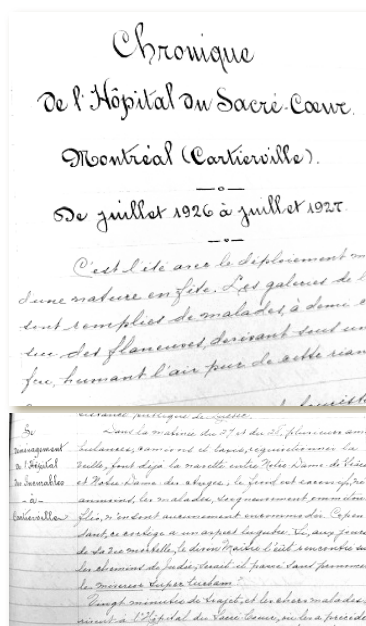 Chronique
de l'Hôpital du Sacré-Cœur.
Montréal (Cartierville).
De juillet 1926 à juillet 1927.
C'est l'été avec le déploiement
d'une nature en fête. Les galeries de l
sont remplies de malades, à demi
sur des flaneuses, devisant sous un
feu, humant l'air pur de cette rian
Le
déménagement
de l'Hôpital
des Incurables
- à -
Cartierville
Dans la matinée du 27 et du 28, plusieurs am
bulances, camions et taxis, réquisitionnés la
veille, font déjà la navette entre Notre-Dame de Grâce
et Notre-Dame des Anges, le froid est
anmoins, les malades, soigneusement emmitou
flés, n'en sont aucunement incommodés. Cepen
dant, ce cortège a un aspect lugubre. Si, aux jours
de sa vie mortelle, le divin Maître l'eût rencontré sur
les chemins de Judée, serait-il passé sans prononcer
les
Vingt minutes de trajet, et les chers malades,
arrivent à l'Hôpital du Sacré-Cœur, où les a précédé